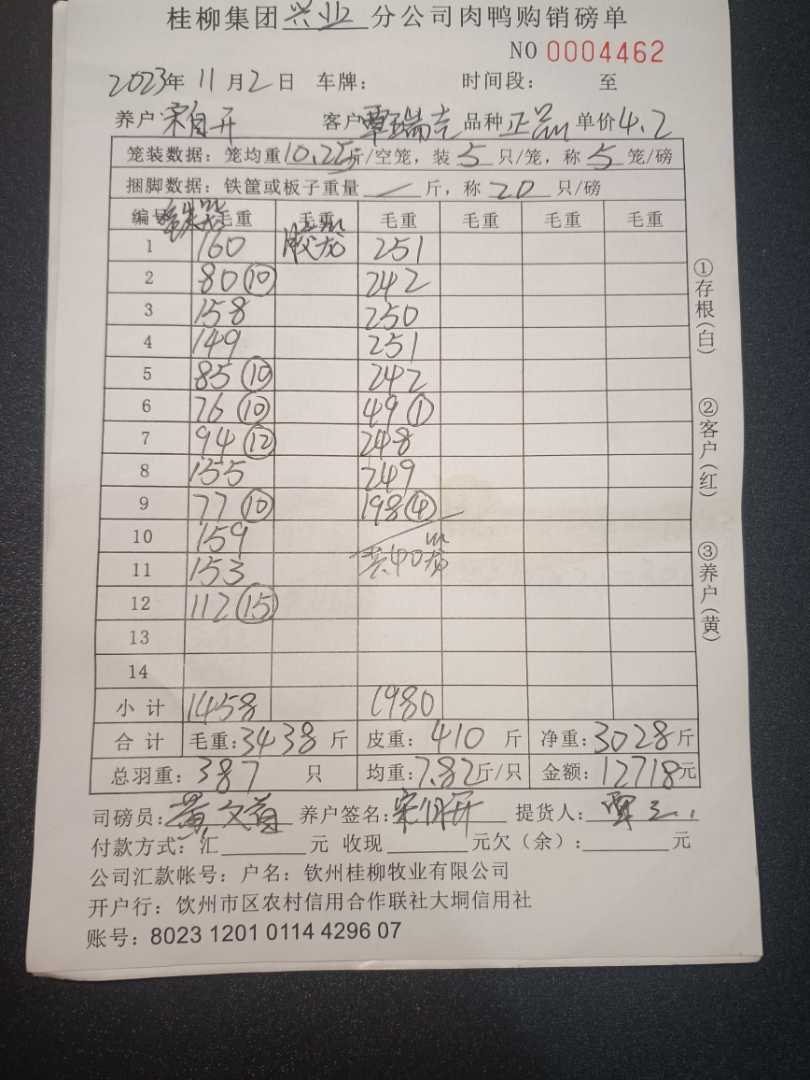 桂柳集团兴业分公司肉鸭购销磅单
NO 0004462
2023年11月2日 车牌: 时间段: 至
养户 宋自开 客户 覃瑞 品种 正品 单价 4.2
笼装数据: 笼均重10.25斤/空笼, 装5只/笼, 称5笼/磅
捆脚数据: 铁筐或板子重量 斤, 称20只/磅
编号 毛重 毛重 毛重 毛重 毛重 毛重
1 160 胶笼 251
2 80⑩ 242
3 158 250
4 149 251
5 85⑩ 242
6 76⑩ 49①
7 94⑫ 248
8 155 249
9 77⑩ 198④
10 159 共40笼
11 153
12 112⑮
13
14
小计 1458 1980
合计 毛重:3438斤 皮重:410斤 净重:3028斤
总羽重:387只 均重:7.82斤/只 金额:12718元
司磅员: 黄文 养户签名: 宋 开 提货人: 覃
付款方式: 汇 元 收现 元欠(余): 元
公司汇款帐号: 户名: 钦州桂柳牧业有限公司
开户行: 饮州市区农村信用合作联社大垌信用社
账号: 8023 1201 0114 4296 07
①存根(白)
②客户(红)
③养户(黄)